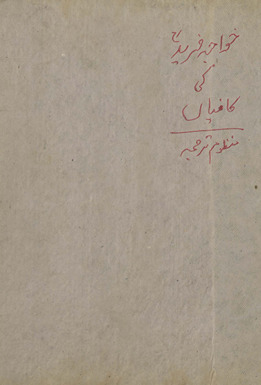 خواجہ فریدؒ
کی
کافیاں
منظوم ترجمہ